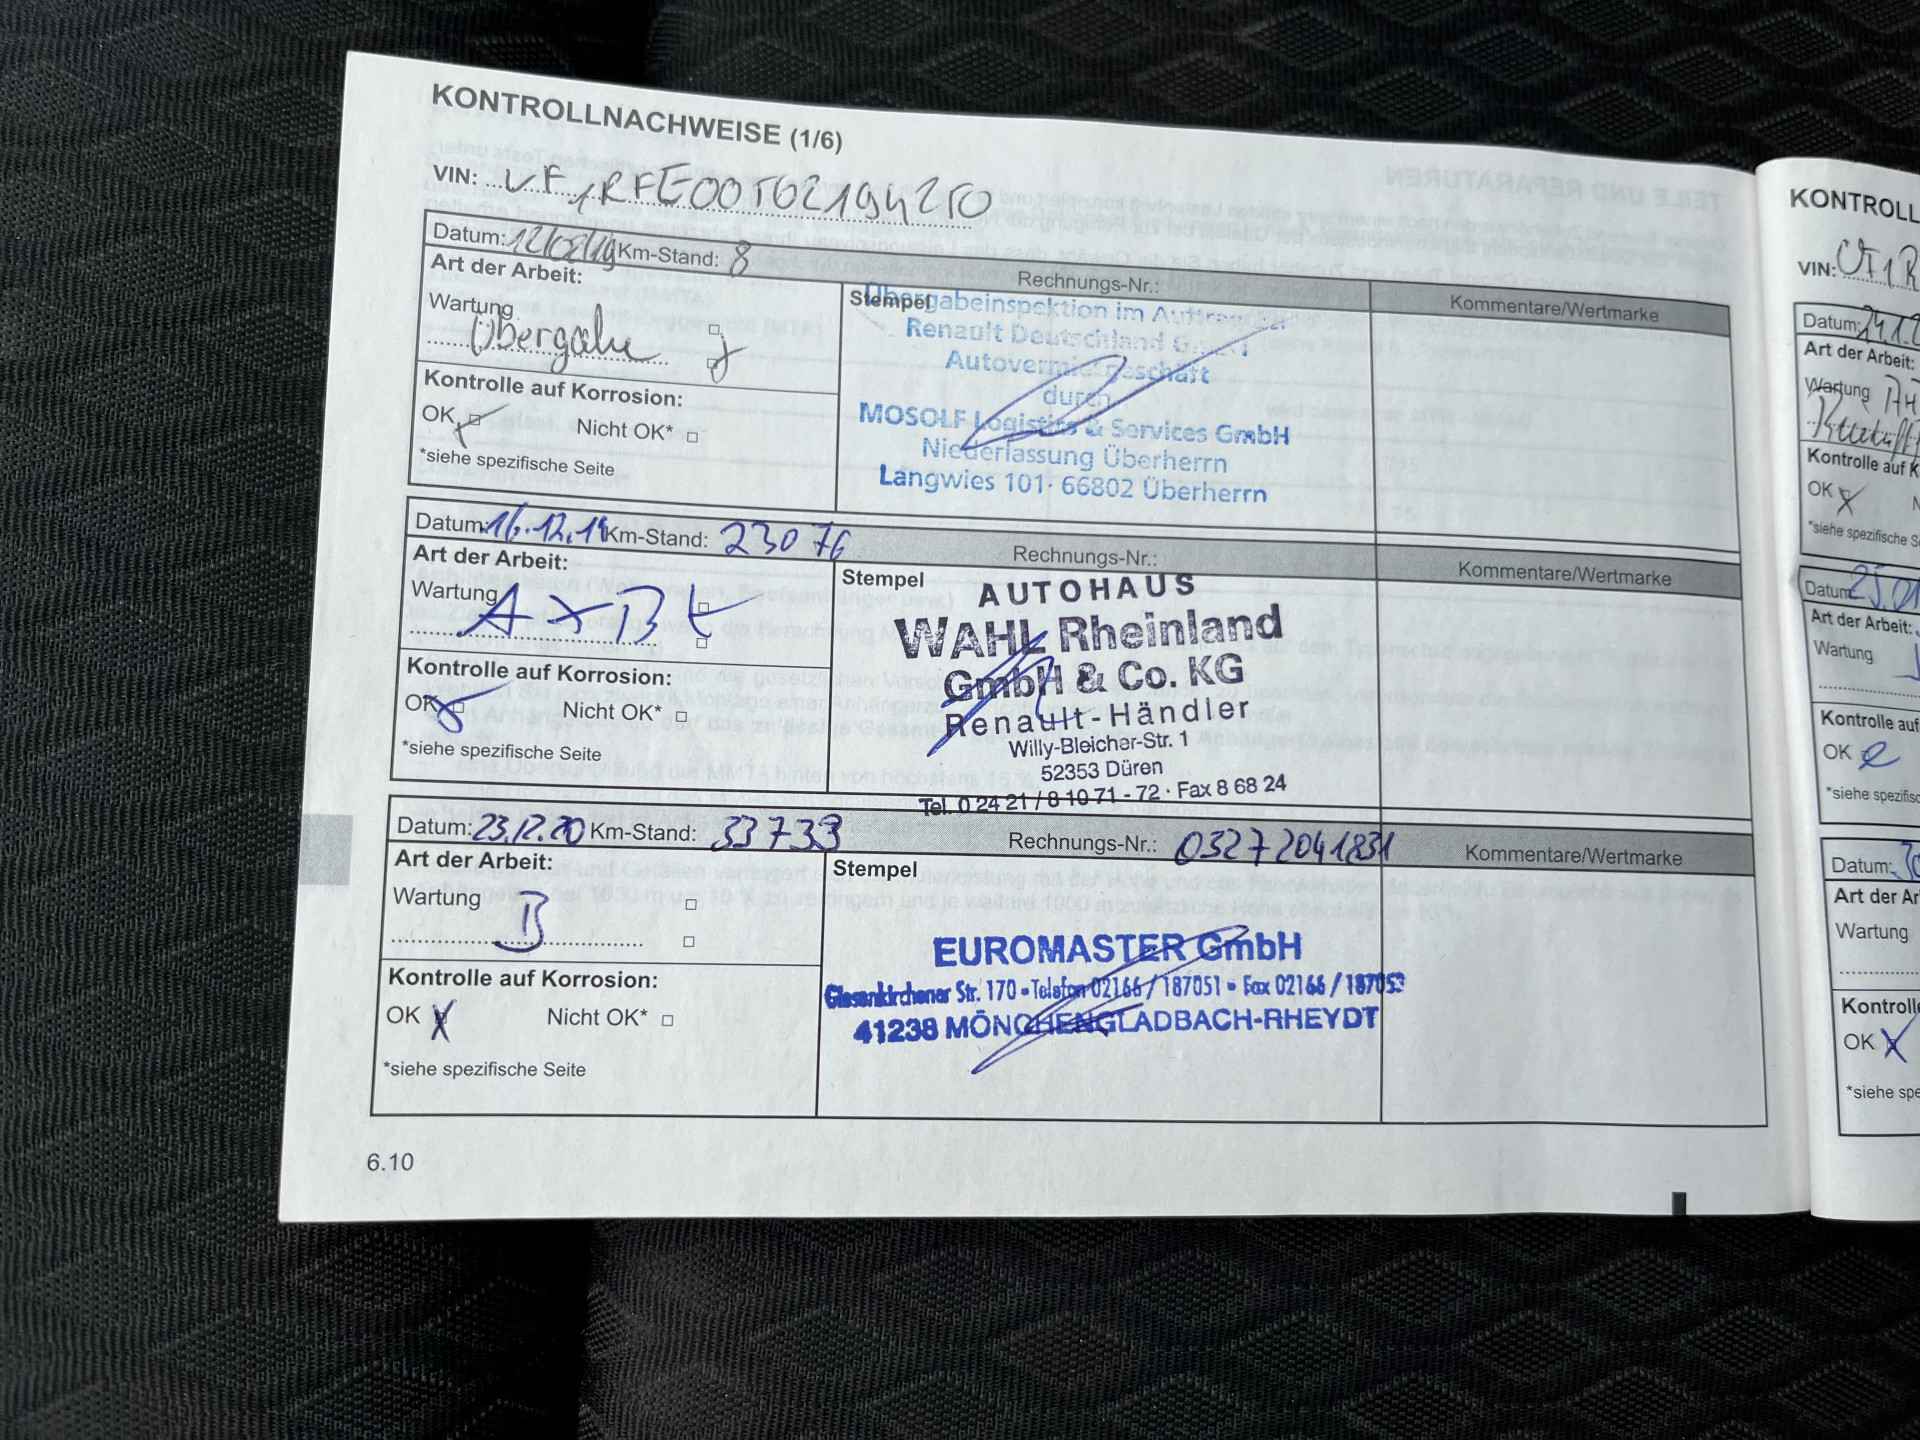 KONTROLLNACHWEISE (1/6)
VIN:
Datum: Km-Stand: 8
Rechnungs-Nr.:
Kommentare/Wertmarke
Art der Arbeit:
Wartung
Übergabe
Kontrolle auf Korrosion:
OK Nicht OK*
*siehe spezifische Seite
Stempel
Übergabeinspektion im Auftrag
Renault Deutschland
Autovermietgeschäft
durch
MOSOLF Logistics & Services GmbH
Niederlassung Überherrn
Langwies 101· 66802 Überherrn
Datum: 16.12.19 Km-Stand: 23076
Rechnungs-Nr.:
Kommentare/Wertmarke
Art der Arbeit:
Wartung
A + B
Kontrolle auf Korrosion:
OK Nicht OK*
*siehe spezifische Seite
Stempel
AUTOHAUS
WAHL Rheinland
GmbH & Co. KG
Renault-Händler
Willy-Bleicher-Str. 1
52353 Düren
Tel. 0 24 21 / 8 10 71 - 72 · Fax 8 68 24
Datum: 23.12.20 Km-Stand: 33733
Rechnungs-Nr.: 03272041831
Kommentare/Wertmarke
Art der Arbeit:
Wartung
B
Kontrolle auf Korrosion:
OK X Nicht OK*
*siehe spezifische Seite
Stempel
EUROMASTER GmbH
Giesenkirchener Str. 170 • Telefon 02166 / 187051 • Fax 02166 / 187053
41238 MÖNCHENGLADBACH-RHEYDT
6.10
KONTROLL
VIN:
Datum:
Art der Arbeit:
Wartung
Kontrolle auf K
OK
*siehe spezifische S
Datum: 25.01
Art der Arbeit:
Wartung
Kontrolle auf
OK
*siehe spezifisc
Datum:
Art der Ar
Wartung
Kontrolle
OK X
*siehe spe